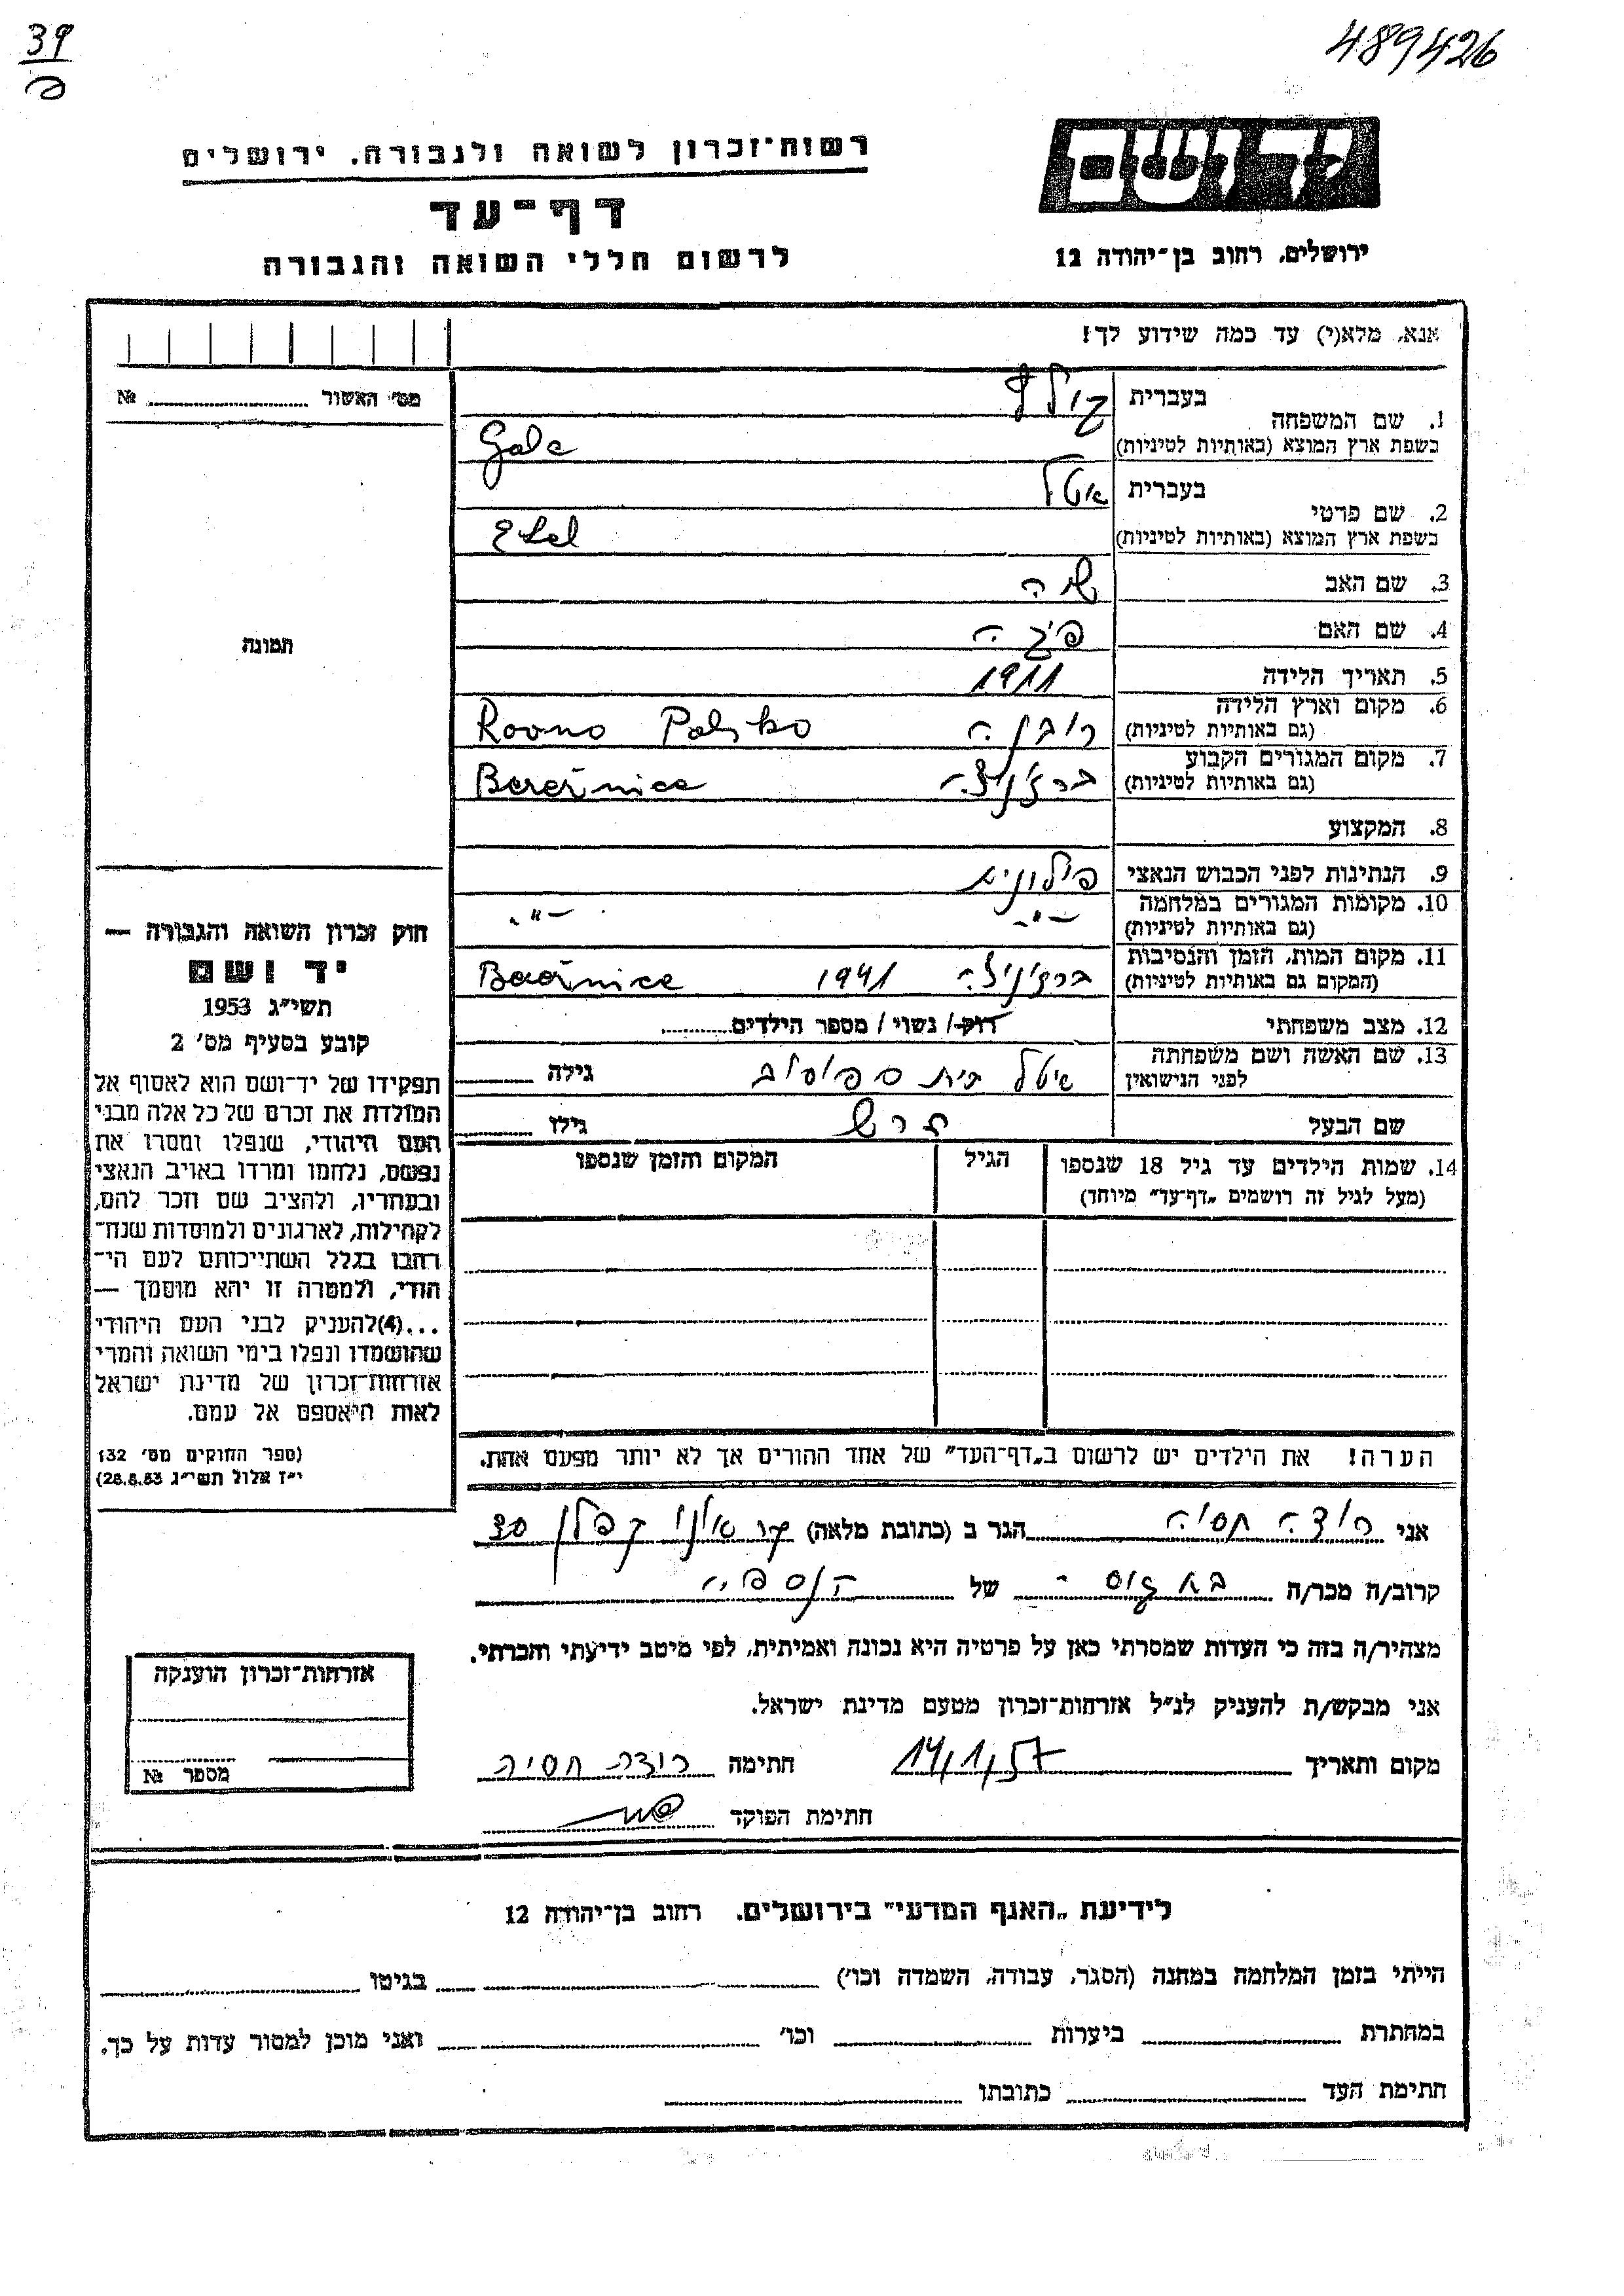 39
489426
יד ושם
רשות־זכרון לשואה ולגבורה, ירושלים
דף־עד
לרשום חללי השואה והגבורה
ירושלים, רחוב בן־יהודה 12
אנא, מלא(י) עד כמה שידוע לך!
מס׳ האשור № 
1. שם המשפחה
בעברית
בשפת ארץ המוצא (באותיות לטיניות)
2. שם פרטי
בעברית אטל
בשפת ארץ המוצא (באותיות לטיניות) Etel
3. שם האב
4. שם האם
5. תאריך הלידה 1911
6. מקום וארץ הלידה
(גם באותיות לטיניות) Rovno
7. מקום המגורים הקבוע
(גם באותיות לטיניות) Berežnice
8. המקצוע
9. הנתינות לפני הכבוש הנאצי
10. מקומות המגורים במלחמה —"— —"—
(גם באותיות לטיניות)
11. מקום המות, הזמן והנסיבות
(המקום גם באותיות לטיניות) 1941 Berežnice
12. מצב משפחתי רווק/ נשוי/ מספר הילדים
13. שם האשה ושם משפחתה
לפני הנישואין גילה
שם הבעל הרש גילו
14. שמות הילדים עד גיל 18 שנספו
(מעל לגיל זה רושמים „דף־עד״ מיוחד)
הגיל
המקום והזמן שנספו
הערה! את הילדים יש לרשום ב„דף־העד״ של אחד ההורים אך לא יותר מפעם אחת.
תמונה
חוק זכרון השואה והגבורה —
יד ושם
תשי״ג 1953
קובע בסעיף מס׳ 2
תפקידו של יד־ושם הוא לאסוף אל
המולדת את זכרם של כל אלה מבני
העם היהודי, שנפלו ומסרו את
נפשם, נלחמו ומרדו באויב הנאצי
ובעוזריו, ולהציב שם וזכר להם,
לקהילות, לארגונים ולמוסדות שנח־
רבו בגלל השתייכותם לעם הי־
הודי, ולמטרה זו יהא מוסמך —
...(4)להעניק לבני העם היהודי
שהושמדו ונפלו בימי השואה והמרי
אזרחות־זכרון של מדינת ישראל
לאות היאספם אל עמם.
(ספר החוקים מס׳ 132
י״ז אלול תשי״ג 28.8.53)
אני חסיה הגר ב (כתובת מלאה) קפלן
קרוב/ה מכר/ה של
מצהיר/ה בזה כי העדות שמסרתי כאן על פרטיה היא נכונה ואמיתית, לפי מיטב ידיעתי והכרתי.
אני מבקש/ת להעניק לנ״ל אזרחות־זכרון מטעם מדינת ישראל.
מקום ותאריך 14/1/57 חתימה חסיה
חתימת הפוקד
אזרחות־זכרון הוענקה
מספר №
לידיעת „האגף המדעי״ בירושלים, רחוב בן־יהודה 12
הייתי בזמן המלחמה במחנה (הסגר, עבודה, השמדה וכו׳) בגיטו
במחתרת ביערות וכו׳ ואני מוכן למסור עדות על כך.
חתימת העד כתובתו